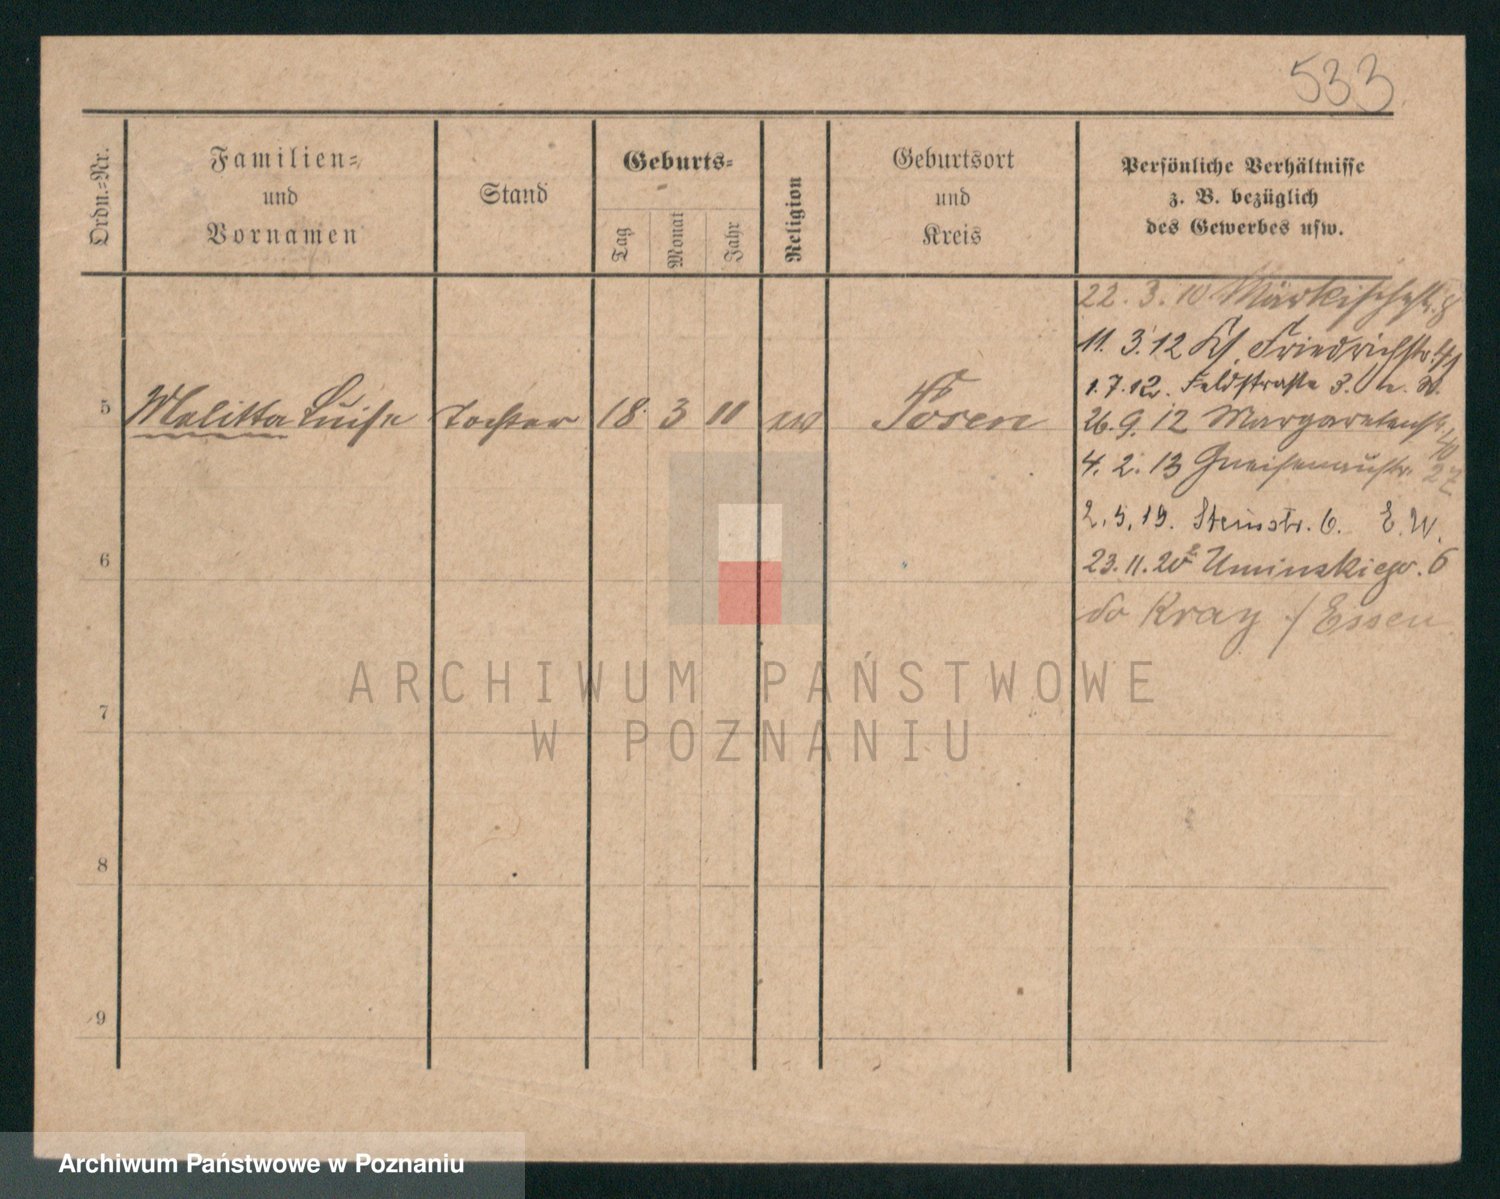 533
Ordn.-Nr.
Familien-
und
Vornamen
Stand
Geburts-
Tag
Monat
Jahr
Religion
Geburtsort
und
Kreis
Persönliche Verhältnisse
z. B. bezüglich
des Gewerbes usw.
22. 3. 10 Märkischestr. 8
11. 3. 12 Friedrichstr.
1. 7. 12. Feldstraße 3.
5 Melitta Luise Tochter 18 3 11 ev Posen
26. 9. 12 Margaretenstr. 40
4. 2. 13 Gneisenaustr. 27
2. 5. 19. Steinstr. 6. E. W.
6
23. 11. 20 Uminskiego. 6
do Kray / Essen
ARCHIWUM PAŃSTWOWE
W POZNANIU
7
8
9
Archiwum Państwowe w Poznaniu